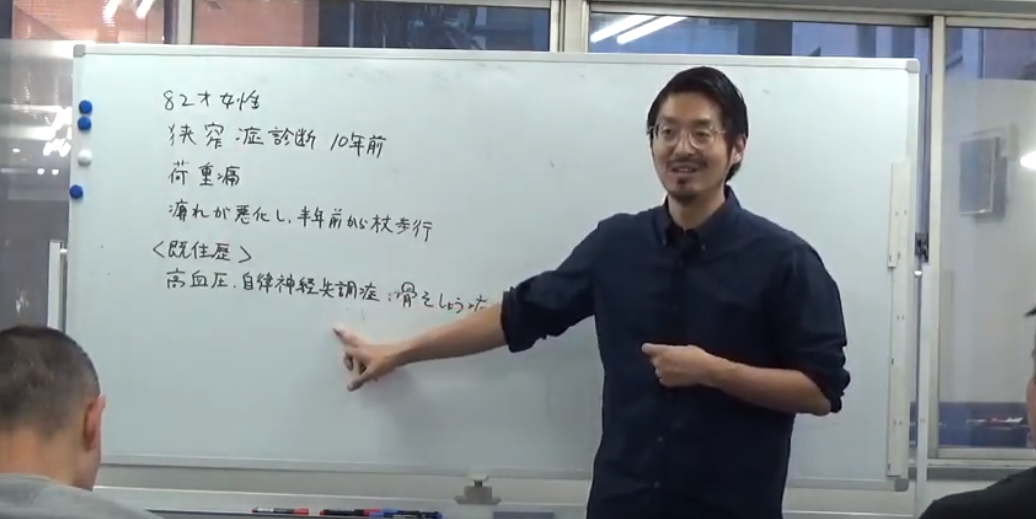 82才女性
狭窄症診断 10年前
荷重痛
痺れが悪化し、半年前から杖歩行
<既往歴>
高血圧、自律神経失調症、骨そしょう症